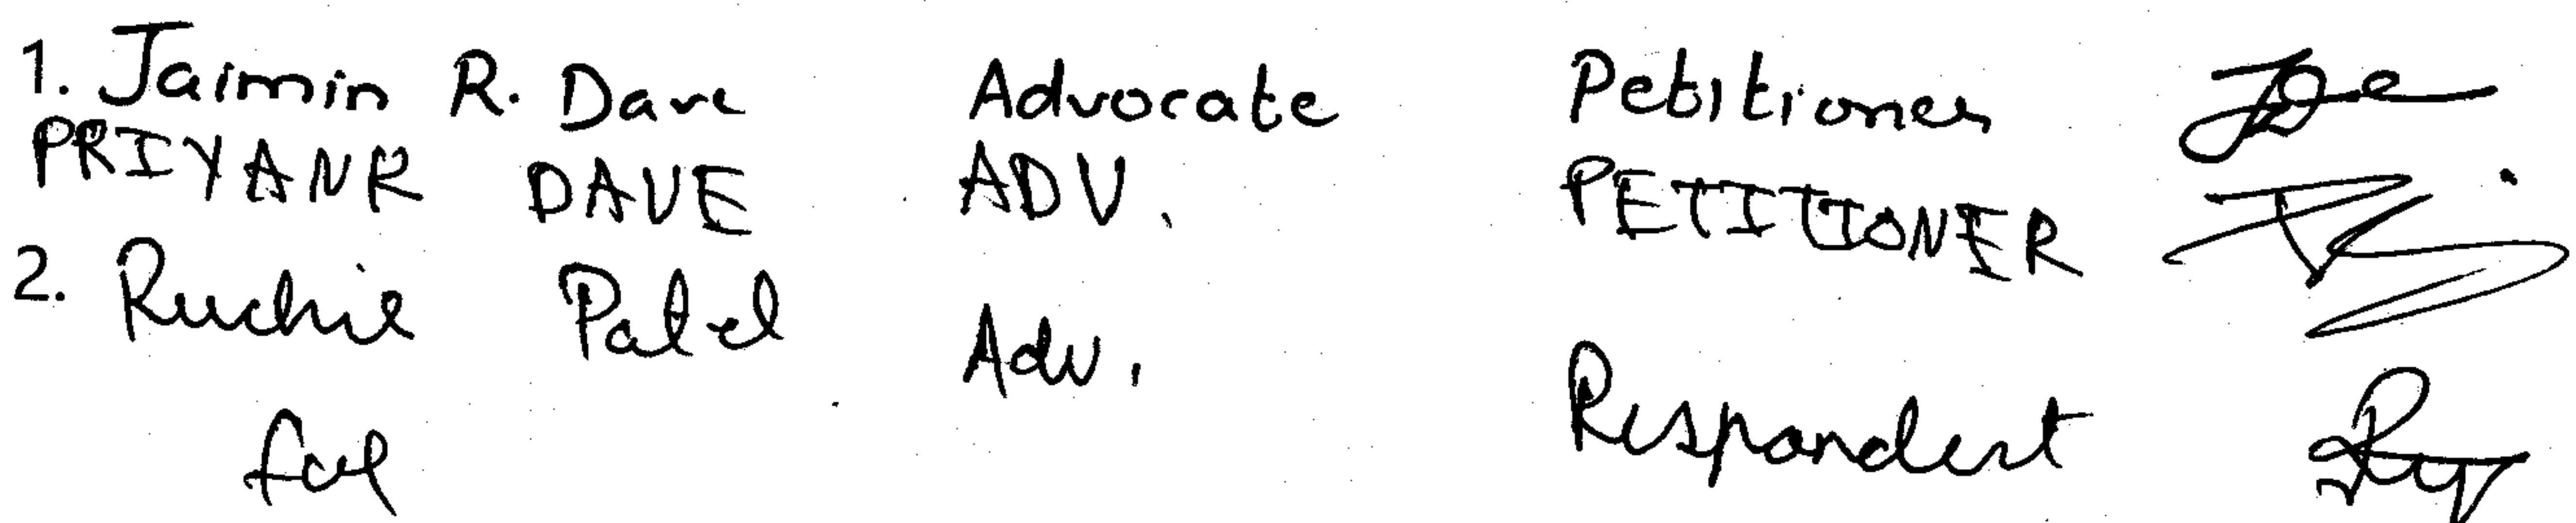 1. Jaimin R. Dave Advocate Petitioner
PRIYANK DAVE ADV. PETITIONER
2. Ruchie Patel Adv.
Respondent